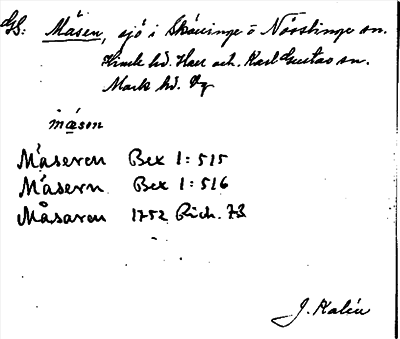 GS: Måsen, sjö i Skällinge o Nösslinge sn.
Himle hd. Hall och. Karl Gustav sn.
Mark hd. Vg
måsən
Måseren Bex 1:515
Måsern Bex 1:516
Måsaren 1752 Rich. 73
J. Kalén